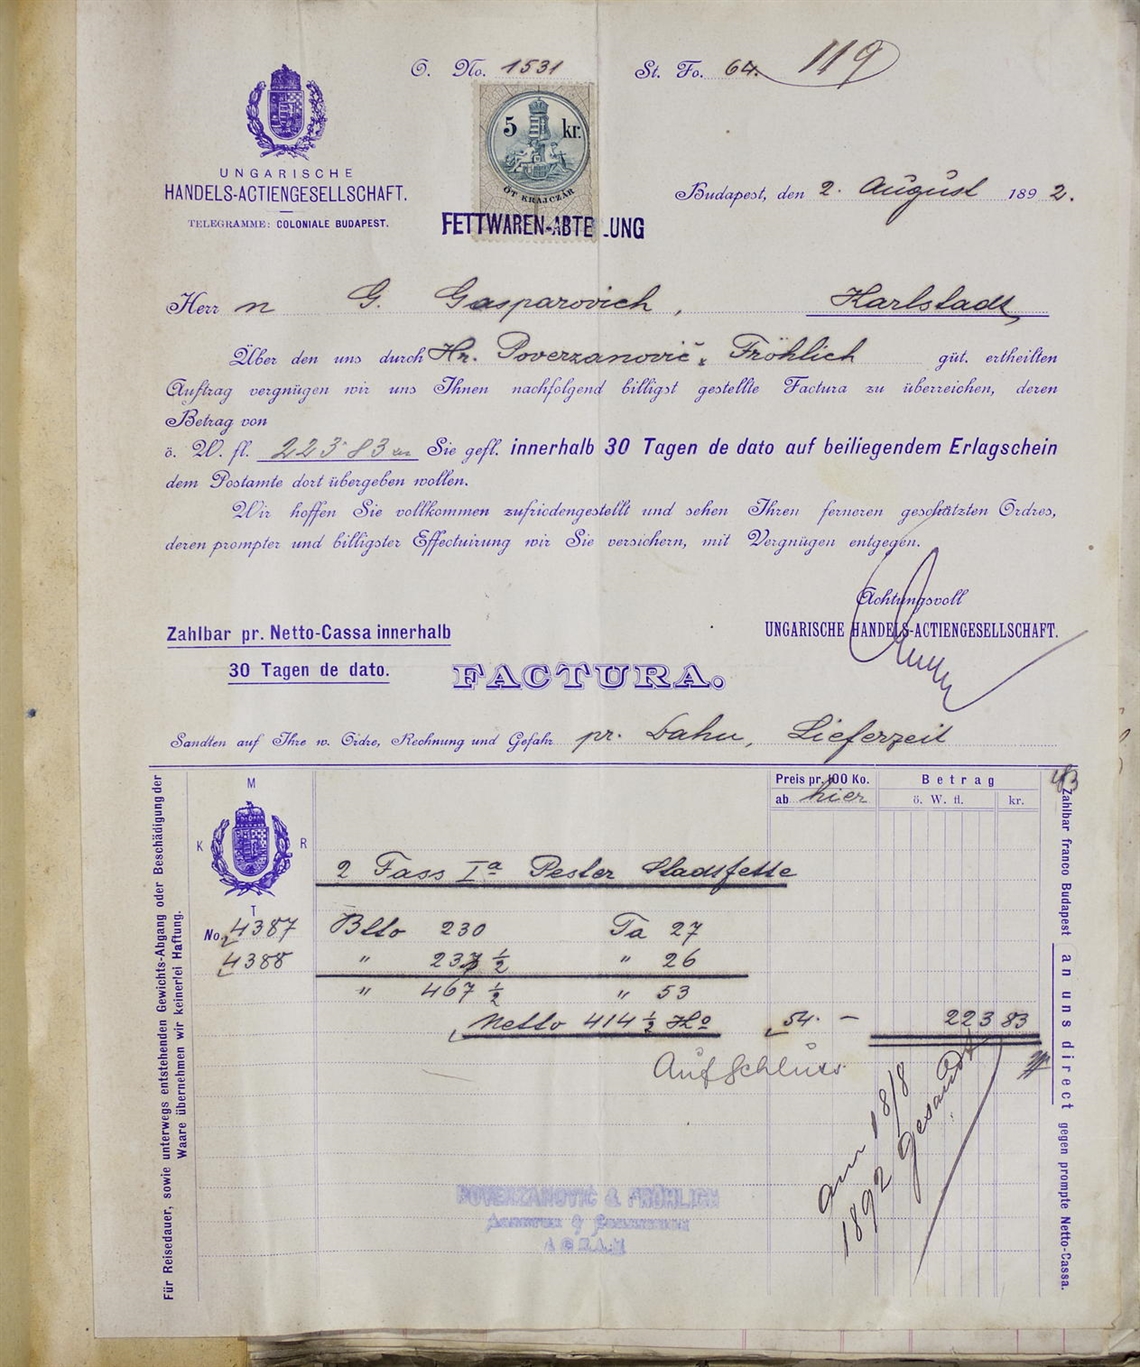 O. No. 1531 St. Fo. 64. 119
5 kr.
ÖT KRAJCZÁR
UNGARISCHE
HANDELS-ACTIENGESELLSCHAFT.
TELEGRAMME: COLONIALE BUDAPEST.
Budapest, den 2. August 1892.
FETTWAREN-ABTEILUNG
Herrn G. Gasparovich, Karlstadt
Über den uns durch Hr. Poverzanovič & Fröhlich güt. ertheilten
Auftrag vergnügen wir uns Ihnen nachfolgend billigst gestellte Factura zu überreichen, deren
Betrag von
ö. W. fl. 223·83 Sie gefl. innerhalb 30 Tagen de dato auf beiliegendem Erlagschein
dem Postamte dort übergeben wollen.
Wir hoffen Sie vollkommen zufriedengestellt und sehen Ihren ferneren geschätzten Ordres,
deren prompter und billigster Effectuirung wir Sie versichern, mit Vergnügen entgegen.
Achtungsvoll
UNGARISCHE HANDELS-ACTIENGESELLSCHAFT.
Zahlbar pr. Netto-Cassa innerhalb
30 Tagen de dato.
FACTURA.
Sandten auf Ihre w. Ordre, Rechnung und Gefahr pr. Bahn, Lieferzeit
Preis pr. 100 Ko. Betrag
ab hier ö. W. fl. kr.
M
K R
T
2 Fass Iª Pester Stadtfette
No. 4387 Btto 230 Ta 27
4388 " 237 ½ " 26
" 467 ½ " 53
Netto 414 ½ Ko 54. — 223 83
Aufschluss
am 18/8
1892 gesandt
POVERZANOVIĆ & FRÖHLICH
AGRAM
Für Reisedauer, sowie unterwegs entstehenden Gewichts-Abgang oder Beschädigung der
Waare übernehmen wir keinerlei Haftung.
Zahlbar franco Budapest an uns direct gegen prompte Netto-Cassa.